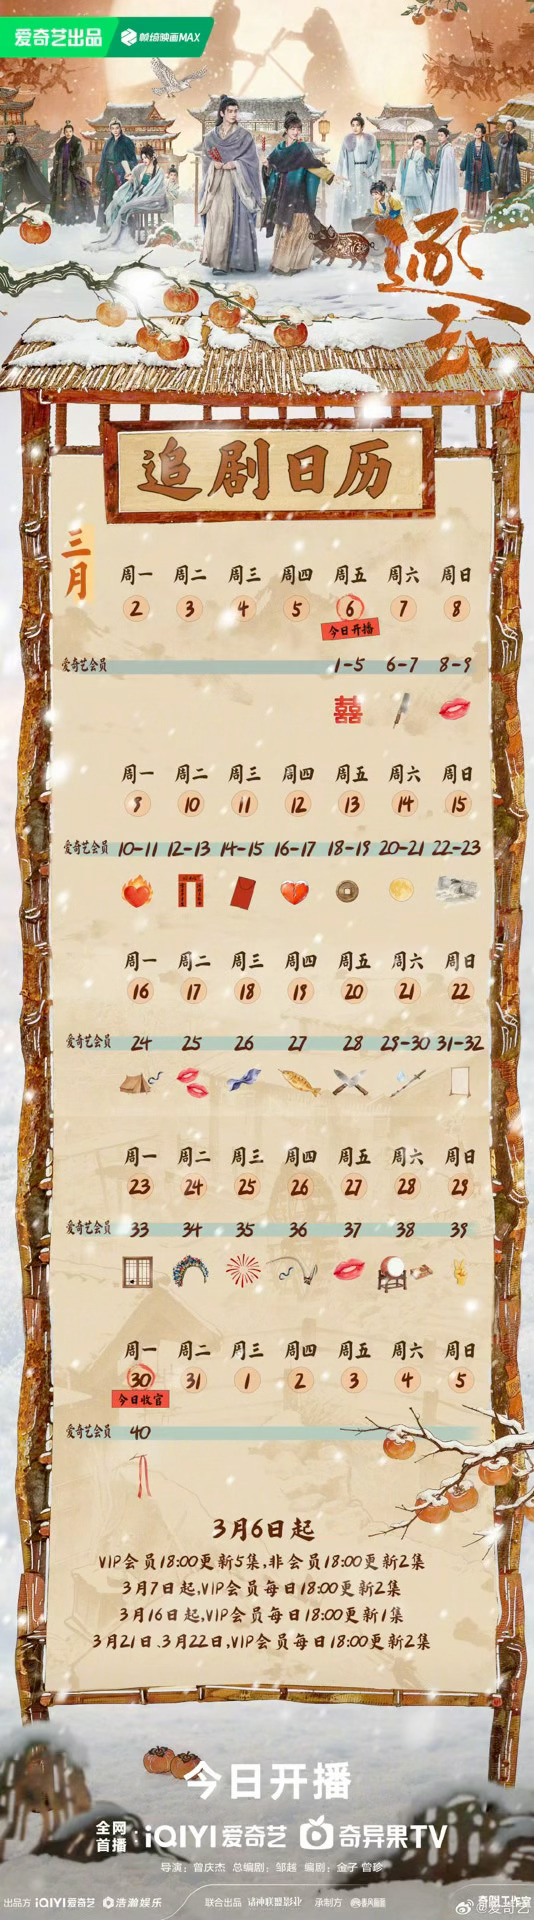 爱奇艺出品 帧绮映画MAX
逐玉
追剧日历
三月
周一 周二 周三 周四 周五 周六 周日
2 3 4 5 6 7 8
今日开播
爱奇艺会员 1-5 6-7 8-9
囍
周一 周二 周三 周四 周五 周六 周日
9 10 11 12 13 14 15
爱奇艺会员 10-11 12-13 14-15 16-17 18-19 20-21 22-23
周一 周二 周三 周四 周五 周六 周日
16 17 18 19 20 21 22
爱奇艺会员 24 25 26 27 28 29-30 31-32
周一 周二 周三 周四 周五 周六 周日
23 24 25 26 27 28 29
爱奇艺会员 33 34 35 36 37 38 39
周一 周二 周三 周四 周五 周六 周日
30 31 1 2 3 4 5
今日收官
爱奇艺会员 40
3月6日起
VIP会员18:00更新5集,非会员18:00更新2集
3月7日起,VIP会员每日18:00更新2集
3月16日起,VIP会员每日18:00更新1集
3月21日、3月22日,VIP会员每日18:00更新2集
今日开播
全网首播: iQIYI爱奇艺 奇异果TV
导演：曾庆杰 总编剧：邹越 编剧：金子 曾珍
出品方 iQIYI爱奇艺 浩瀚娱乐 联合出品 承制方 工作室
@爱奇艺